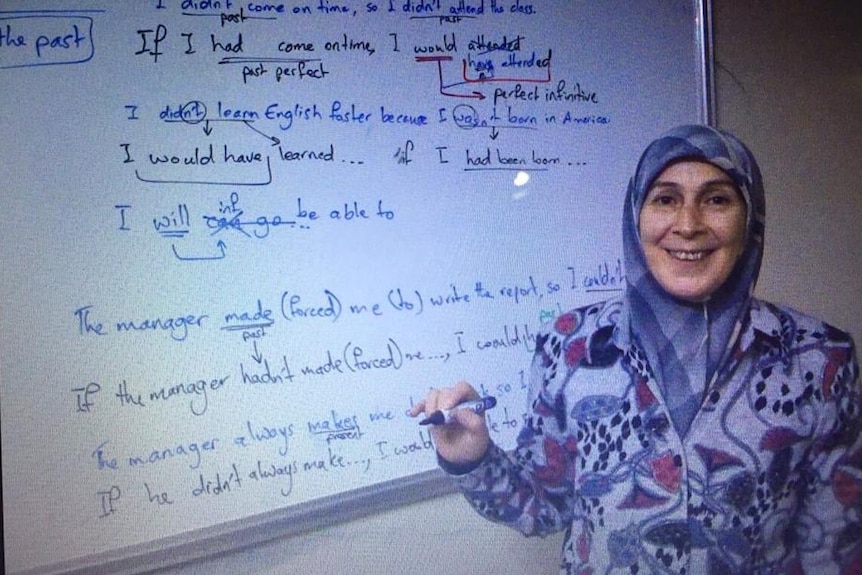 I didn't come on time, so I didn't attend the class.
past past
the past
If I had come on time, I would attended
have attended
past perfect
perfect infinitive
I didn't learn English faster because I wasn't born in America
I would have learned ... if I had been born ...
inf
I will can go be able to
The manager made (forced) me (to) write the report, so I couldn't
past
If the manager hadn't made (forced) me ..., I could
The manager always makes me so I
present
If he didn't always make ..., I would